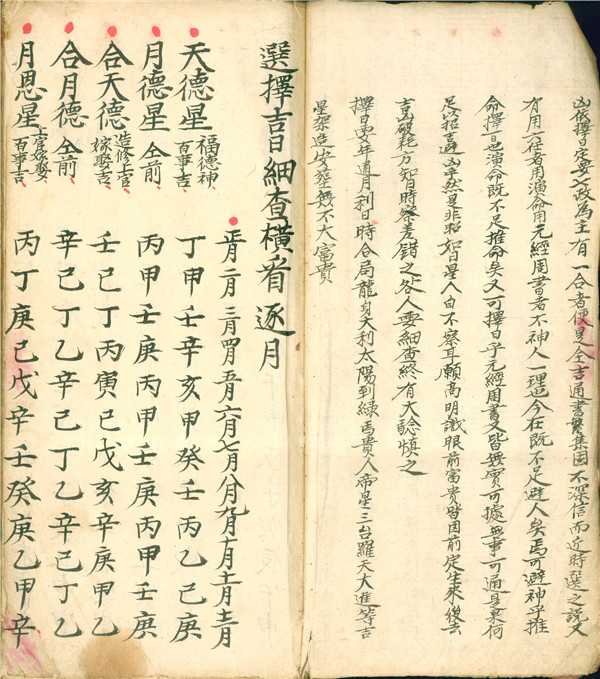 凶依擇日定要以政為主有一合者便是全吉通書繁集固不深信而近時選之說又
有用一在者用演命用元經周書者不神人一理也今在既不足避人矣焉可避神乎推
命擇日也演命既不足推命矣又可擇日乎元經周書又皆無實可據無事可通是果何
足以招吉避凶乎然是非昭如日星人自不察耳願高明識眼前富貴皆因前定生來後去
吉凶破耗方知日時察差錯之咎人要細查終有大驗慎之
擇日要年通月利日時合局龍身大利太陽到綠馬貴人帝星三台羅天大進等吉
星架造安葬無不大富貴
選擇吉日細查橫看逐月
正月二月三月四月五月六月七月八月九月十月十一月十二月
天德星 福德神百事吉 丁申壬辛亥甲癸壬丙乙己庚
月德星 仝前 丙甲壬庚丙甲壬庚丙甲壬庚
合天德 造修上官嫁娶吉 壬巳丁丙寅己戊亥辛庚甲乙
合月德 仝前 辛己丁乙辛己丁乙辛己丁乙
月恩星 上官嫁娶百事吉 丙丁庚己戊辛壬癸庚乙甲辛